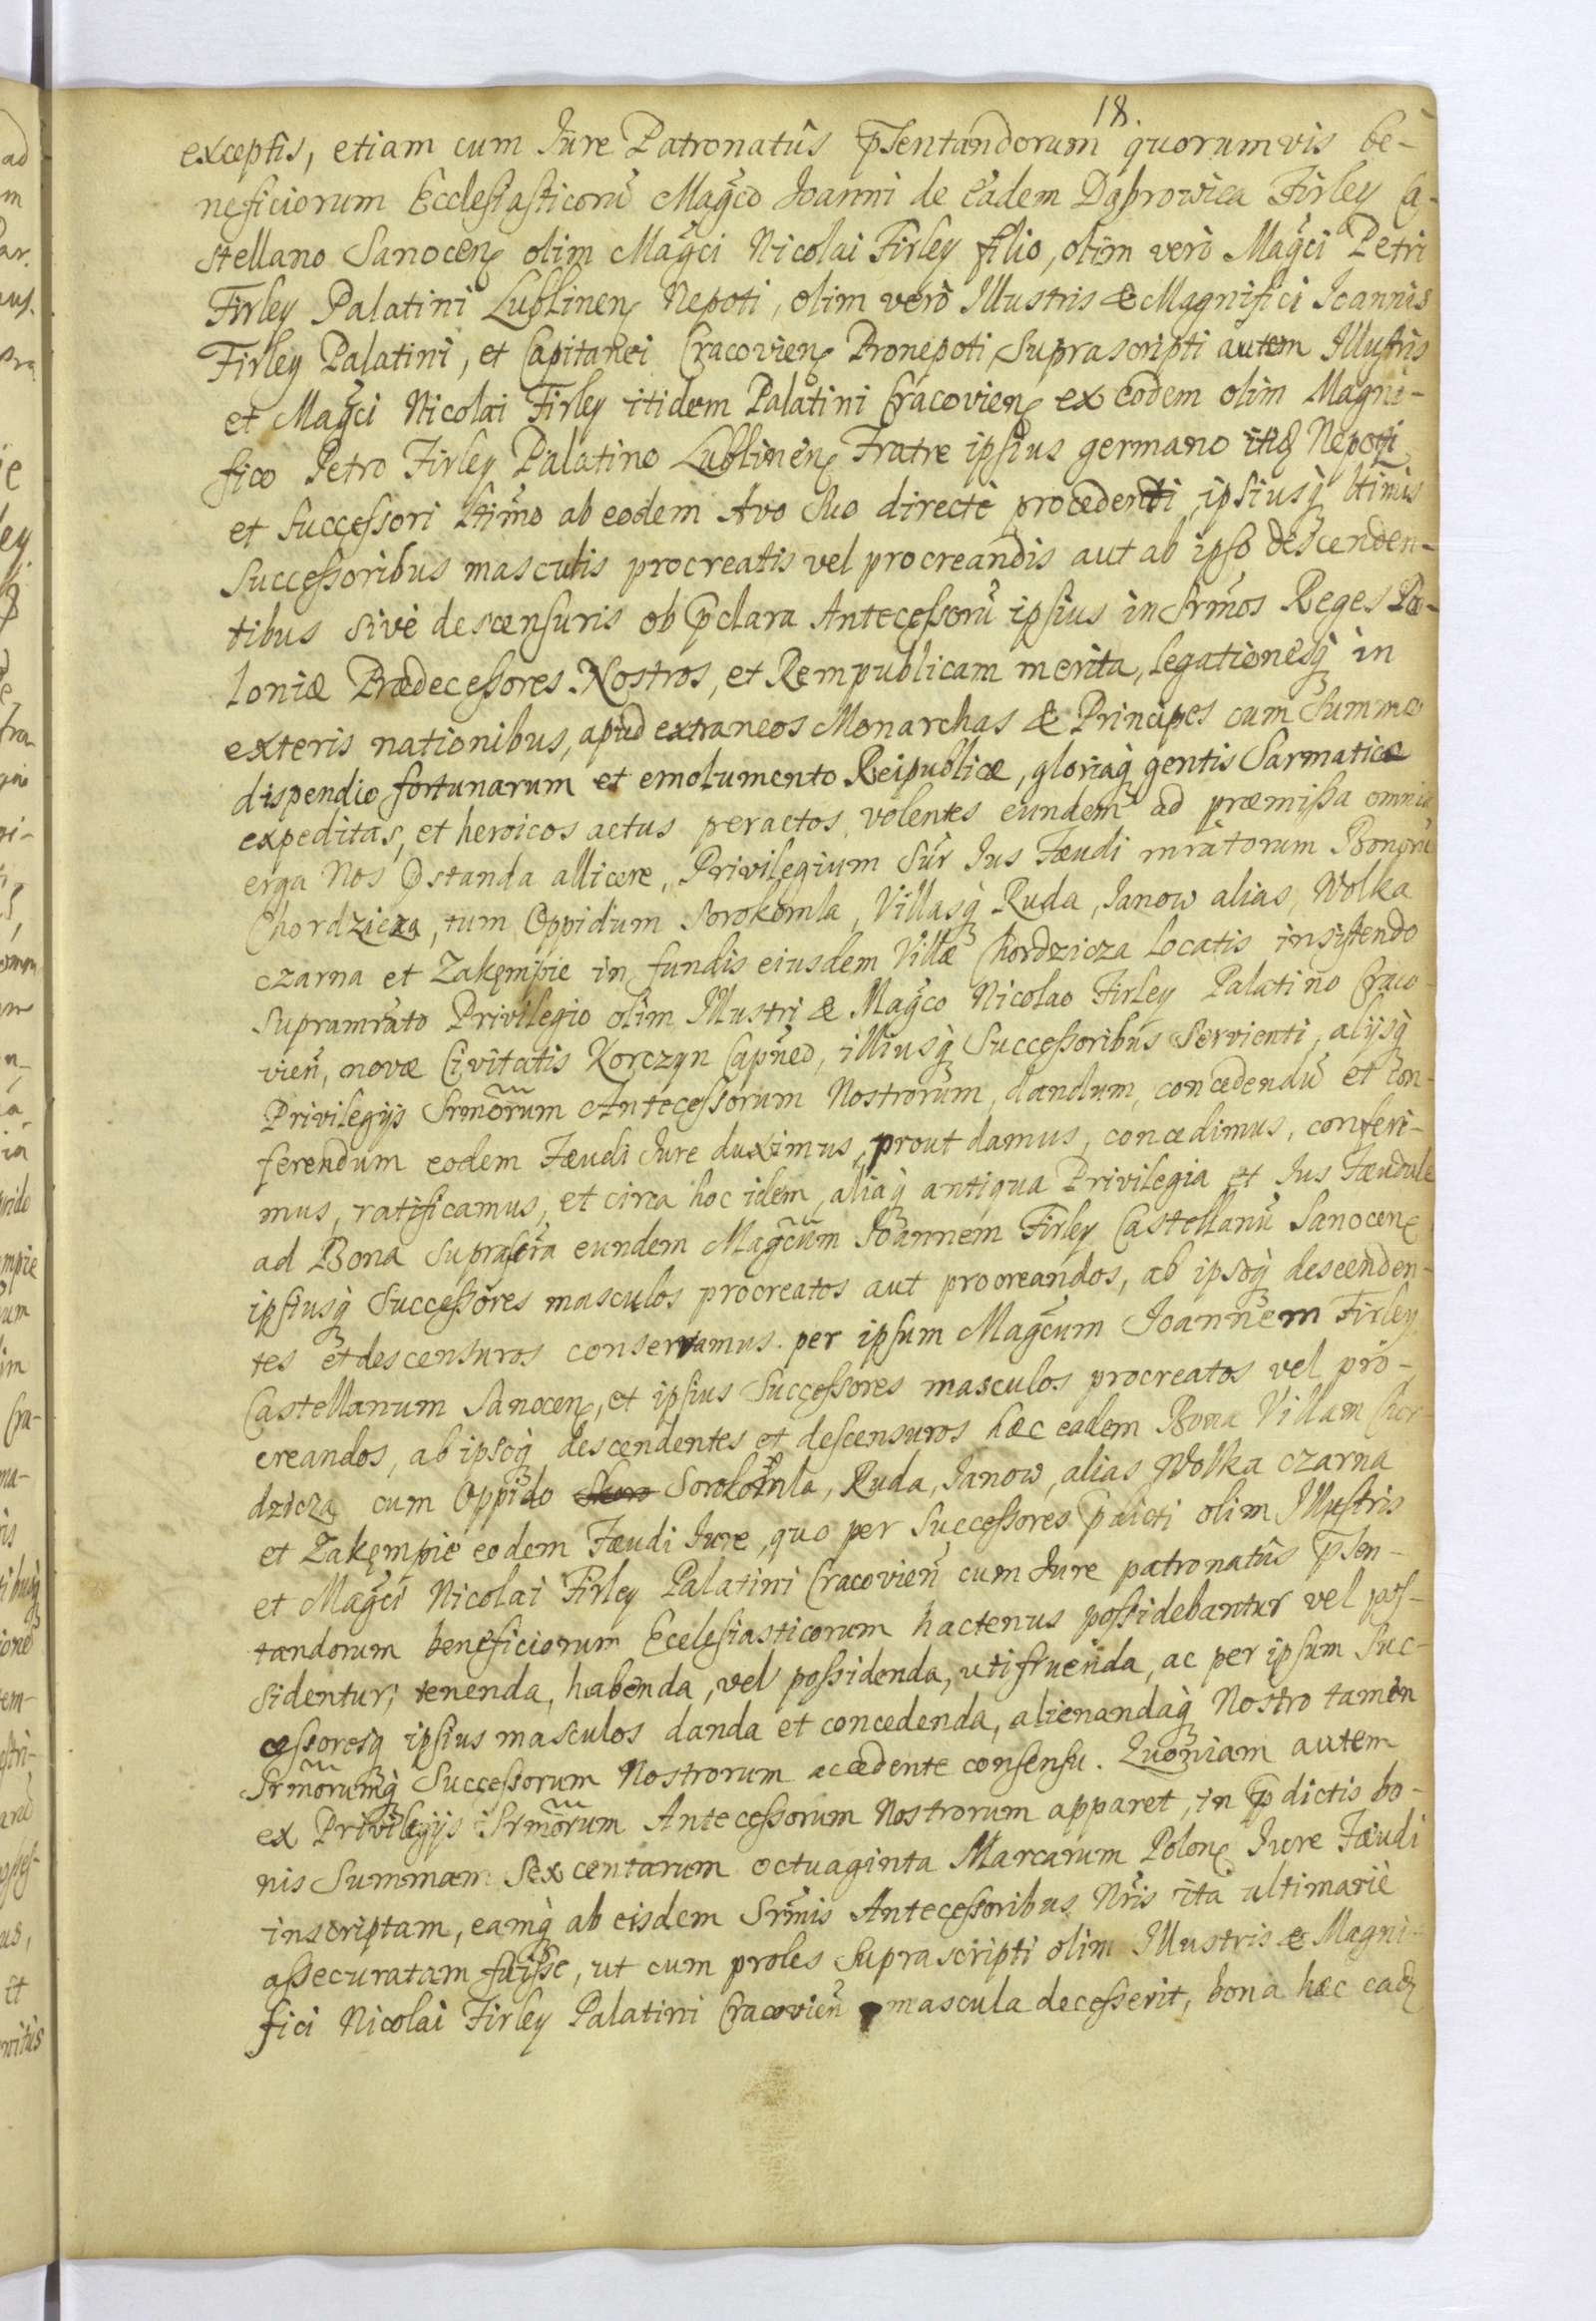 18.
exceptis, etiam cum Jure Patronatûs p̄sentandorum quorumvis be-
neficiorum Ecclesiasticorū Magc̃o Joanni de eadem Dąbrowica Firley Ca-
stellano Sanocen olim Magc̃i Nicolai Firley filio, olim verò Magc̃i Petri
Firley Palatini Lublinen Nepoti, olim verò Illustris & Magnifici Joannis
Firley Palatini, et Capitanei Cracovien Pronepoti, Suprascripti autem Illustris
et Magc̃i Nicolai Firley itidem Palatini Cracovien ex eodem olim Magni-
fico Petro Firley Palatino Lublinen Fratre ipsius germano itid Nepoti
et Successori ltimo ab eodem Avo Suo directè procedenti, ipsiusq̀ ltimis
Successoribus masculis procreatis vel procreandis aut ab ipso descenden-
tibus sivè descensuris ob p̄clara Antecessorū ipsius in Srm̃os Reges Po-
loniæ Prædecessores Nostros, et Rempublicam merita, legationesq̀ in
exteris nationibus, apud extraneos Monarchas & Principes cum Summo
dispendio fortunarum et emolumento Reipublicæ, gloriaq̀ gentis Sarmaticæ
expeditas, et heroicos actus peractos, volentes eundem ad præmissa omnia
erga Nos p̄standa allicere, Privilegium Sūr Jus Fæudi mrãtorum Bonorū
Chordzicza, tum Oppidum Sorokomla, Villasq̀ Ruda, Janow alias Wolka
czarna et Zakęmpie in fundis eiusdem Villæ Chordzicza locatis insistendo
Supramrãto Privilegio olim Illustri & Magc̃o Nicolao Firley Palatino Craco-
vieñ, novæ Civitatis Korczyn Capñeo, illiusq̀ Successoribus Servienti, alijsq̀
Privilegijs Srm̃orum Antecessorum Nostrorum, dandum, concedendū et con-
ferendum eodem Fæudi Jure duximus, prout damus, concedimus, conferi-
mus, ratificamus, et circa hoc idem, aliaq̀ antiqua Privilegia et Jus Fæudale
ad Bona Suprascr̃a eundem Magc̃um Joannem Firley Castellanū Sanocen
ipsiusq̀ Successores masculos procreatos aut procreandos, ab ipsoq̀ descenden-
tes et descensuros conservamus. per ipsum Magc̃um Joannem Firley
Castellanum Sanocen, et ipsius Successores masculos procreatos vel pro-
creandos, ab ipsoq̀ descendentes et descensuros hæc eadem Bona Villam Chor
dzicza cum Oppido Sorokomla, Ruda, Janow, alias Wolka czarna
et Zakęmpie eodem Fæudi Jure, quo per Successores p̄dicti olim Illustris
et Magc̃i Nicolai Firley Palatini Cracovieñ cum Jure patronatûs p̄sen-
tandorum beneficiorum Ecclesiasticorum hactenus possidebantur vel pos-
sidentur, tenenda, habenda, vel possidenda, utifruenda, ac per ipsum Suc-
cessoresq̀ ipsius masculos danda et concedenda, alienandaq̀ Nostro tamen
Srm̃orumq̀ Successorum Nostrorum accedente consensu. Quoniam autem
ex Privilegijs Srm̃orum Antecessorum Nostrorum apparet, in p̄dictis bo-
nis Summam Sexcentarum octuaginta Marcarum Polon Jure Fæudi
inscriptam, eamq̀ ab eisdem Srm̃is Antecessoribus Nr̃is ita ultimariè
assecuratam fuisse, ut cum proles Suprascripti olim Illustris & Magni-
fici Nicolai Firley Palatini Cracovieñ mascula decesserit, bona hæc ead